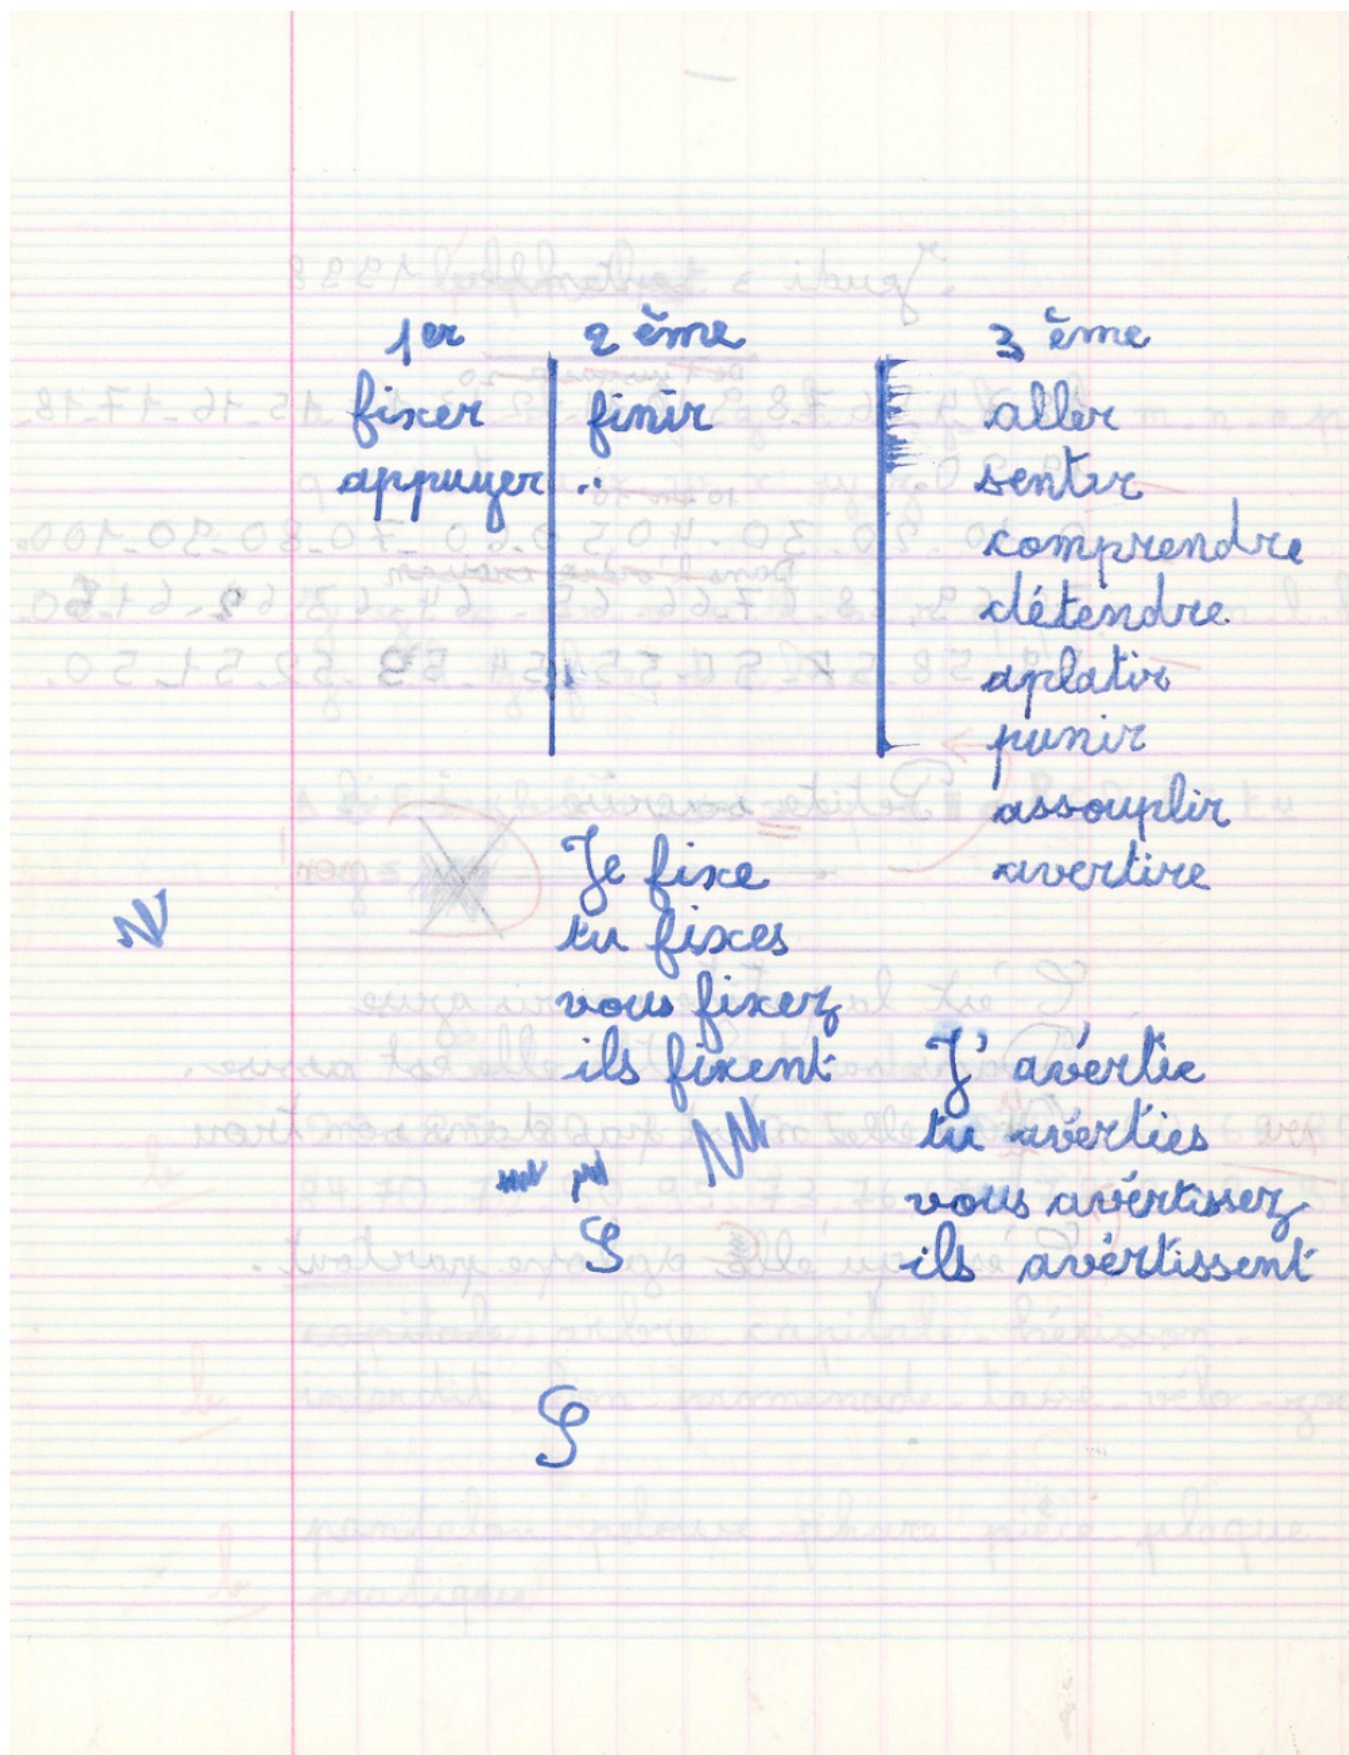 1er 2ème 3ème
fixer finir aller
appuyer .. sentir
comprendre
détendre
aplatir
punir
assouplir
avertire
Je fixe
tu fixes
vous fixez
ils fixent
J' avértie
tu avérties
vous avértissez
ils avértissent